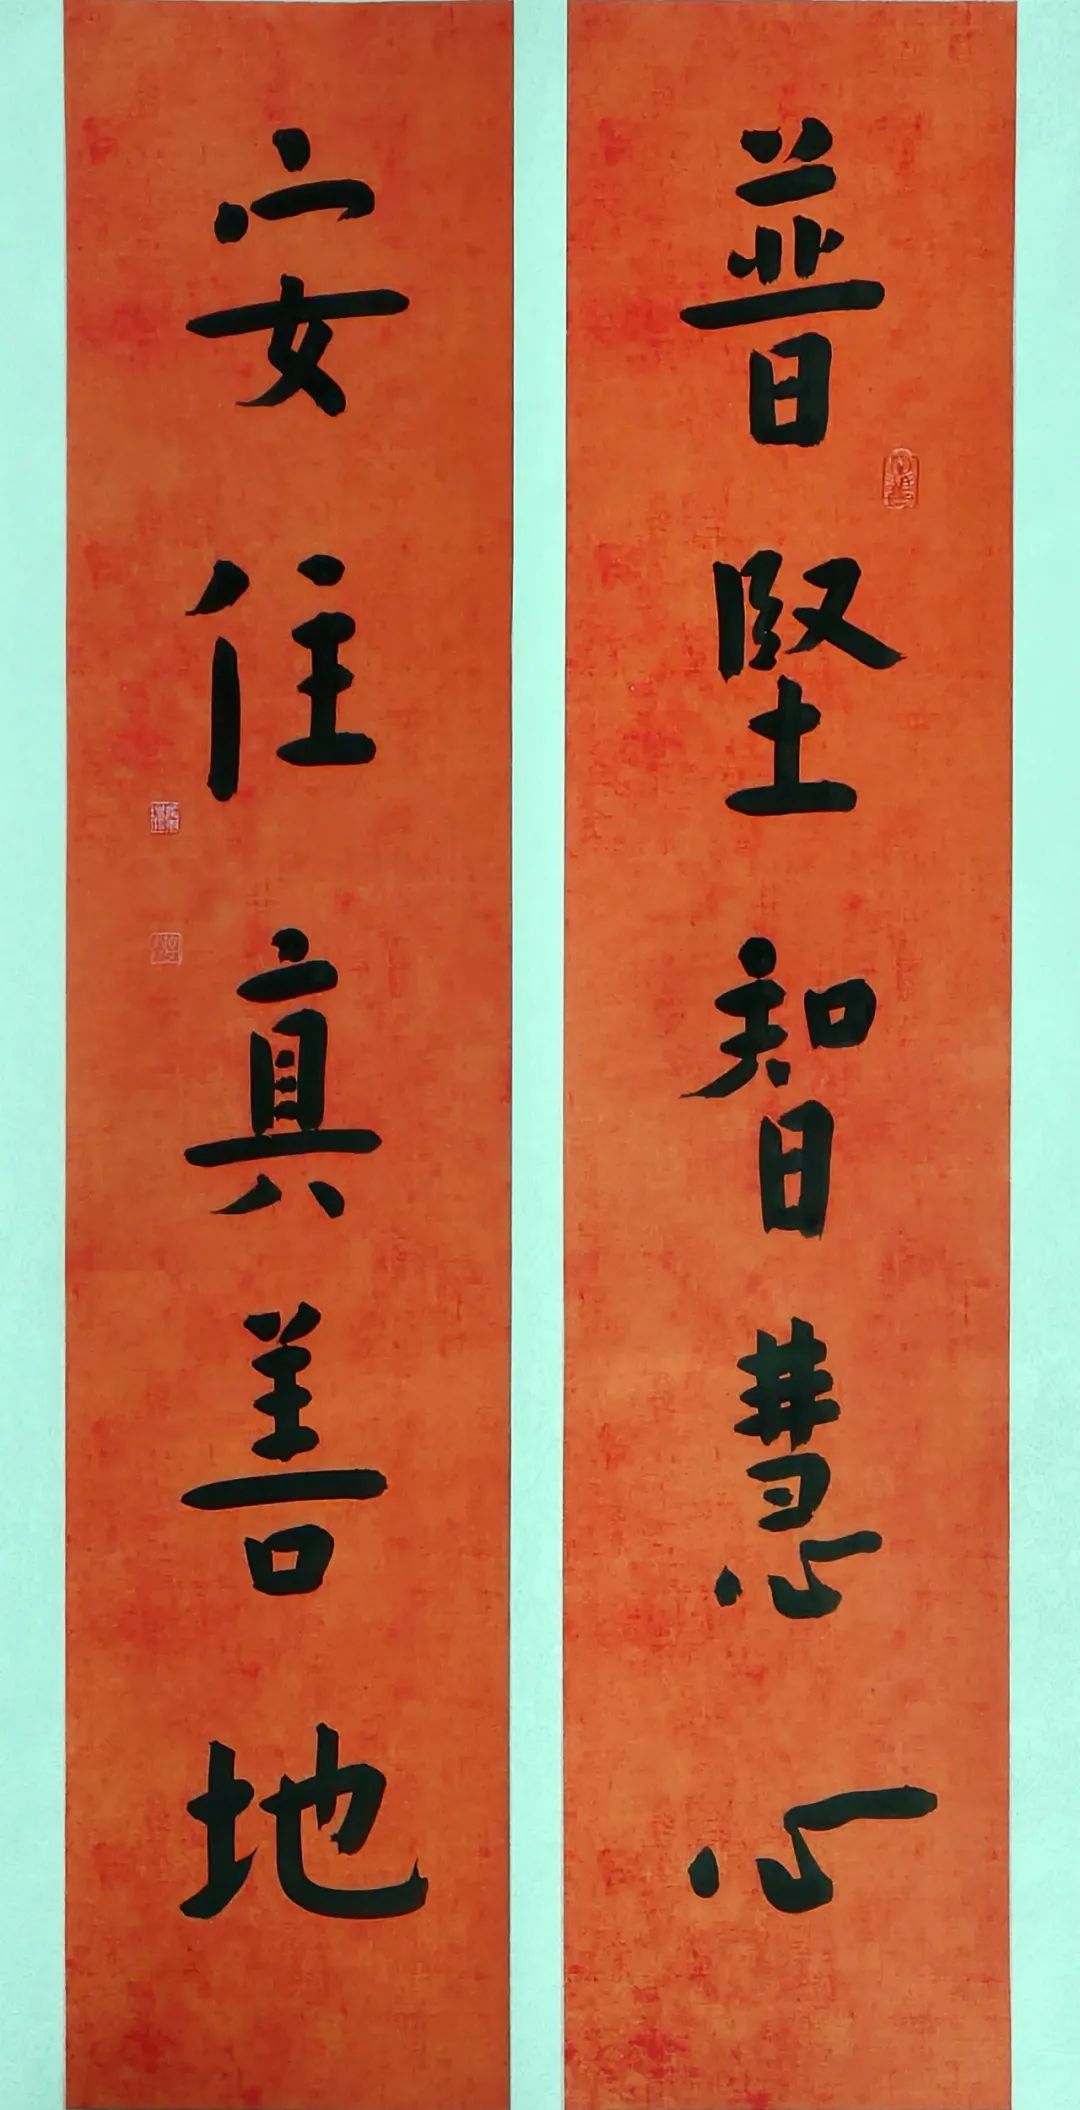 普堅智慧心
安住真善地